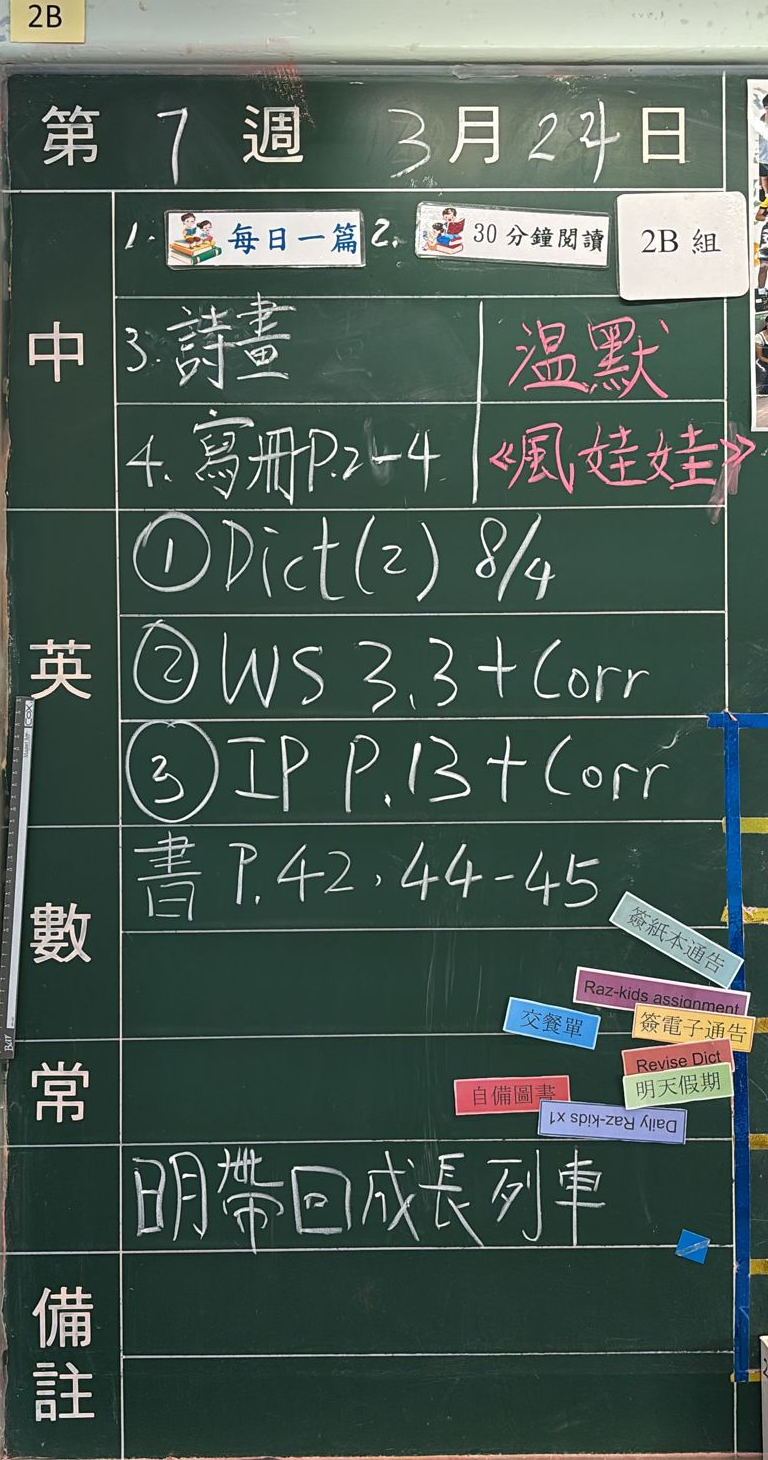 2B
第 7 週 3 月 24 日
中
1. 每日一篇 2. 30 分鐘閱讀 2B 組
3. 詩畫 温默
4. 寫冊P.2-4 《風娃娃》
英
① Dict(2) 8/4
② WS 3.3 + Corr
③ IP P.13 + Corr
數
書 P.42, 44-45
簽紙本通告
Raz-kids assignment
交餐單 簽電子通告
常
Revise Dict
自備圖書 明天假期
Daily Raz-kids x1
明帶回成長列車
備註